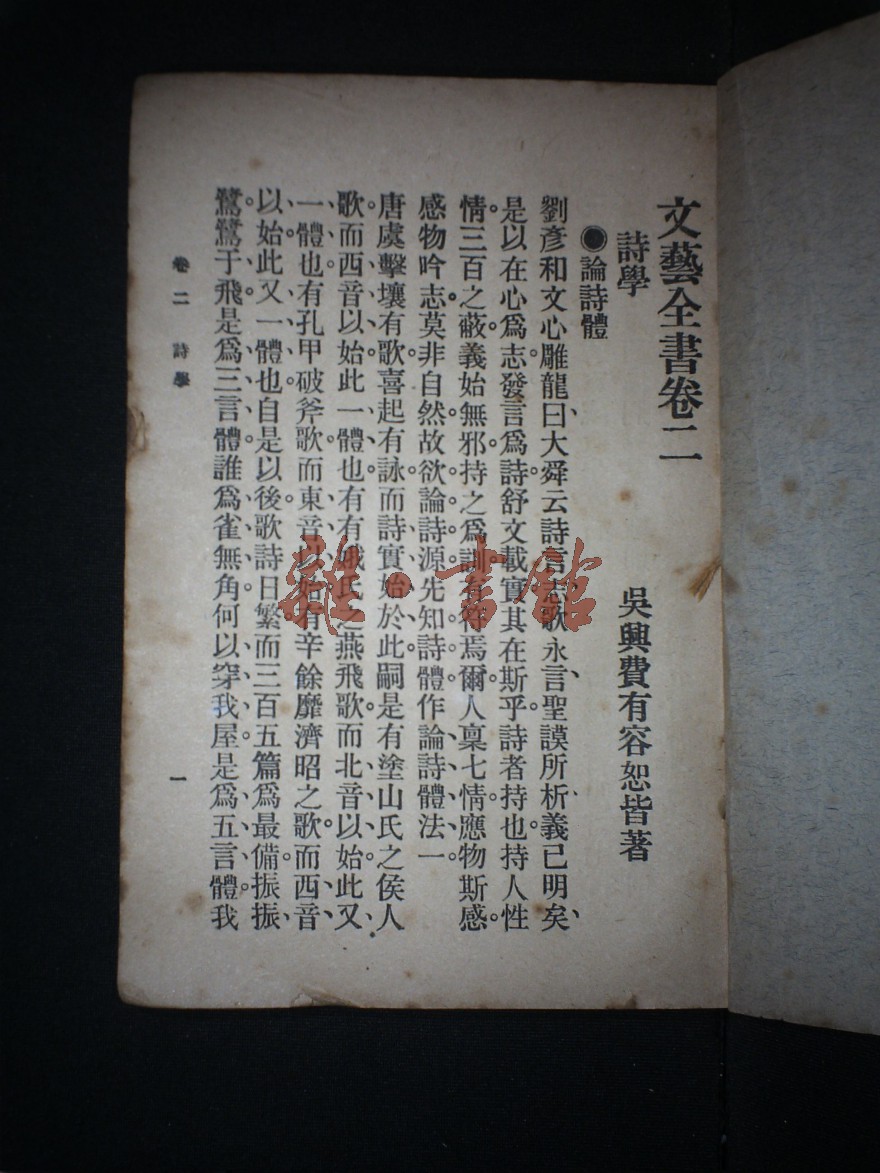 文藝全書卷二
詩學　吳興費有容恕皆著
●論詩體
劉彥和文心雕龍曰大舜云詩言志歌永言聖謨所析義已明矣
是以在心爲志發言爲詩舒文載實其在斯乎詩者持也持人性
情三百之蔽義始無邪持之爲訓有符焉爾人稟七情應物斯感
感物吟志莫非自然故欲論詩源先知詩體作論詩體法一
唐虞擊壤有歌喜起有詠而詩實始於此嗣是有塗山氏之侯人
歌而西音以始此一體也有有娥氏之燕飛歌而北音以始此又
一體也有孔甲破斧歌而東音以始有辛餘靡濟昭之歌而西音
以始此又一體也自是以後歌詩日繁而三百五篇爲最備振振
鷺鷺于飛是爲三言體誰爲雀無角何以穿我屋是爲五言體我
卷二　詩學　一
雜·書館